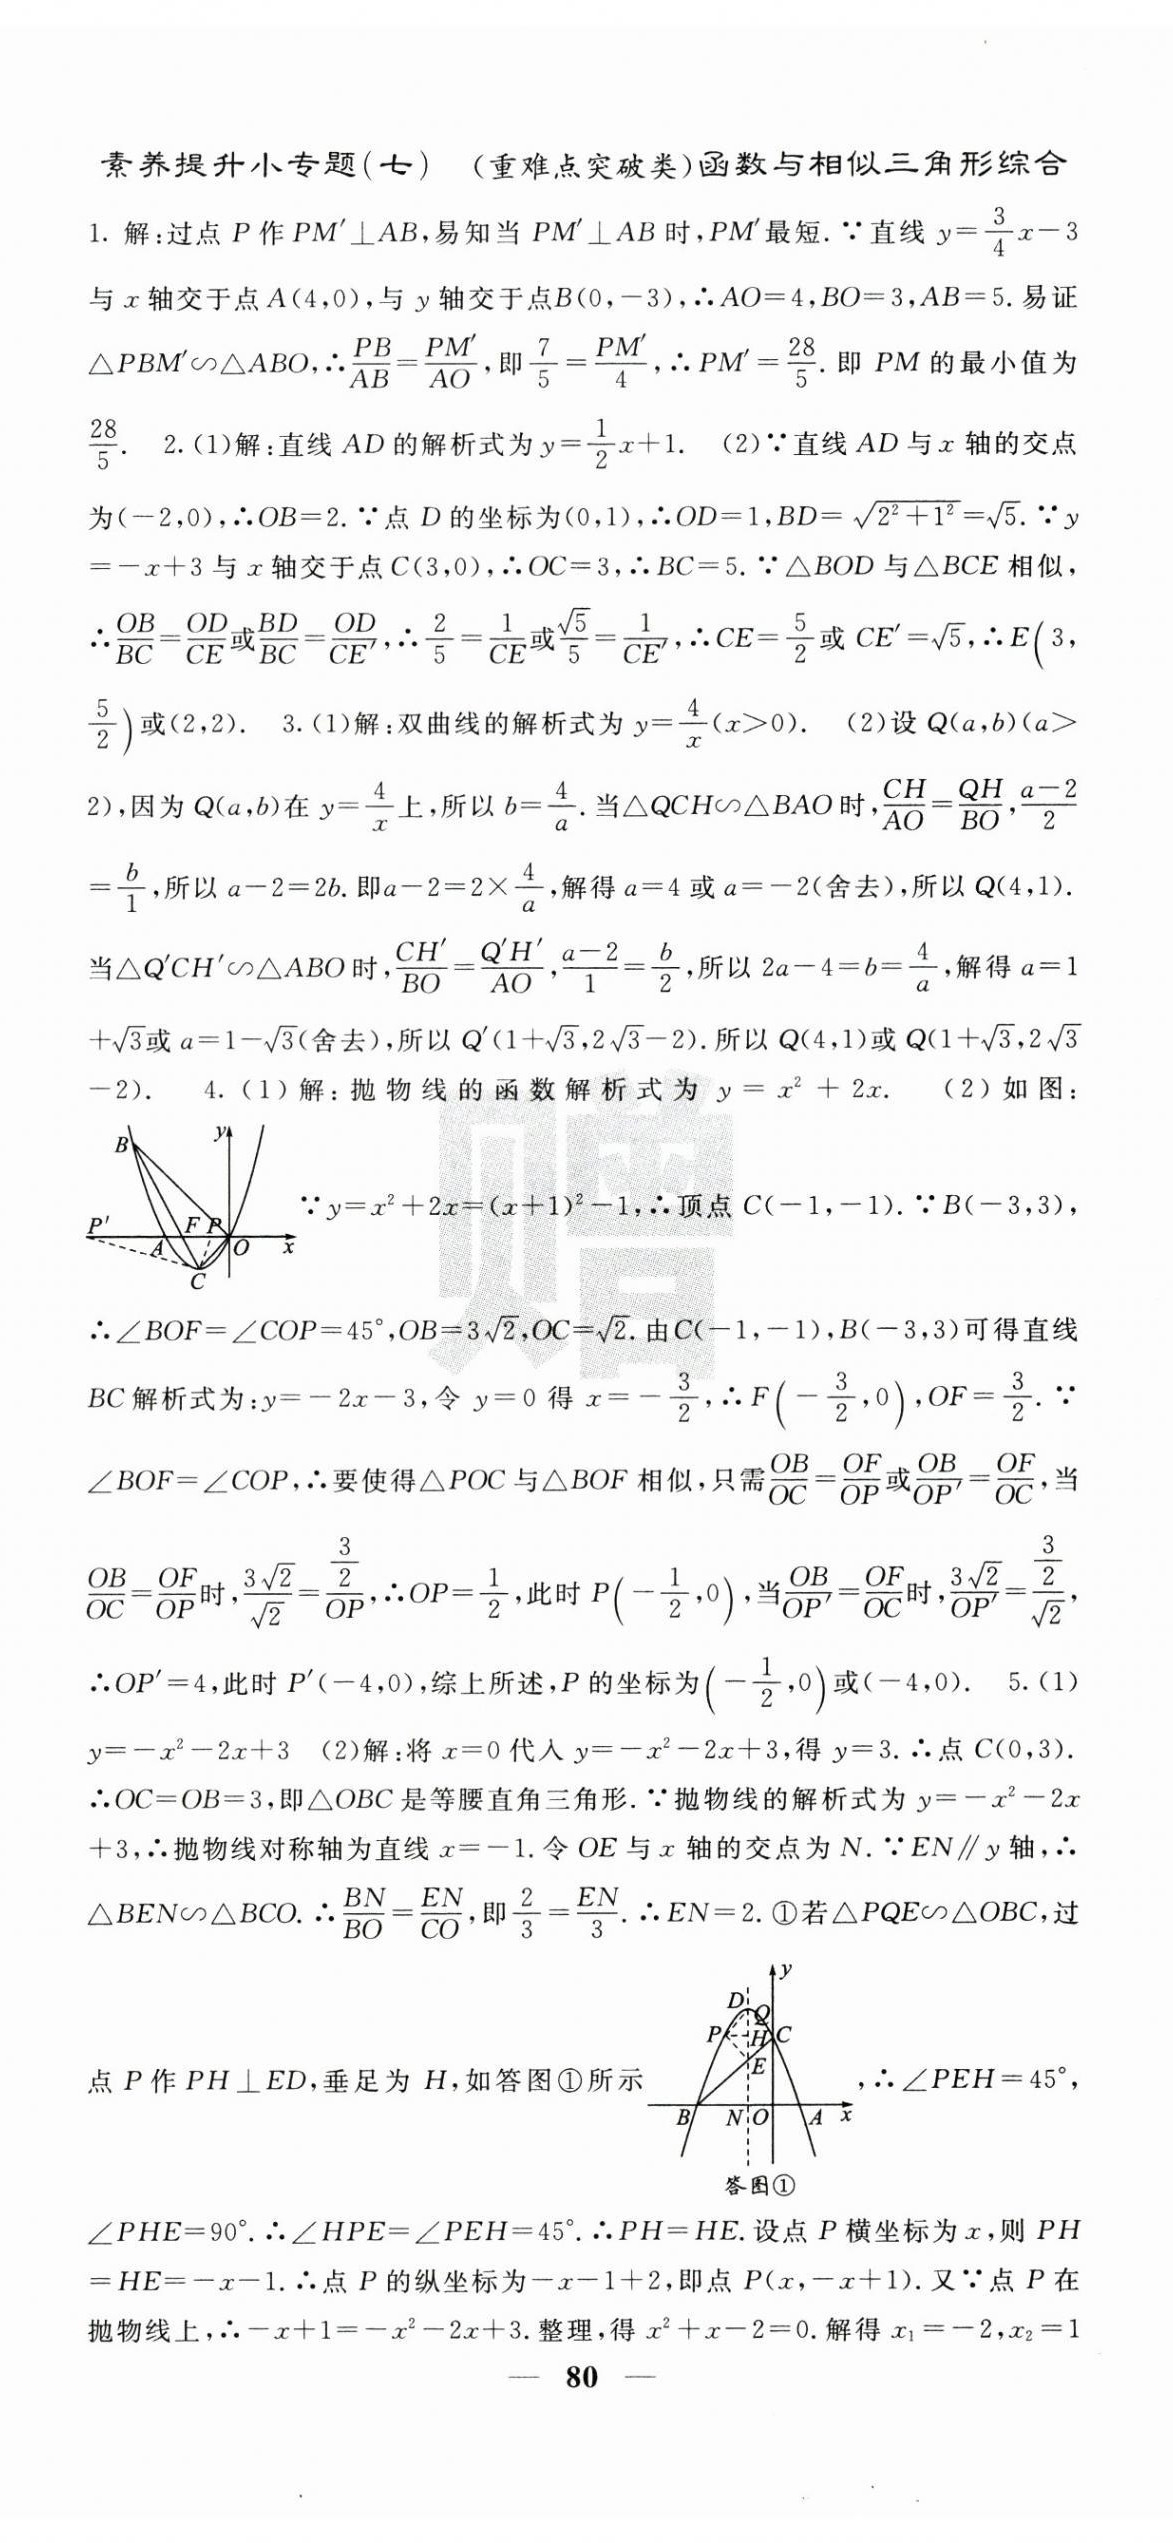 素养提升小专题(七) (重难点突破类)函数与相似三角形综合
1. 解:过点 P 作 PM′⊥AB,易知当 PM′⊥AB 时,PM′最短.∵直线 y=3/4x-3
与 x 轴交于点 A(4,0),与 y 轴交于点B(0,-3),∴AO=4,BO=3,AB=5.易证
△PBM′∽△ABO,∴PB/AB=PM′/AO,即7/5=PM′/4,∴PM′=28/5.即 PM 的最小值为
28/5. 2.(1)解:直线 AD 的解析式为 y=1/2x+1. (2)∵直线 AD 与 x 轴的交点
为(-2,0),∴OB=2.∵点 D 的坐标为(0,1),∴OD=1,BD=√(2²+1²)=√5.∵y
=-x+3 与 x 轴交于点 C(3,0),∴OC=3,∴BC=5.∵△BOD 与△BCE 相似,
∴OB/BC=OD/CE或BD/BC=OD/CE′,∴2/5=1/CE或√5/5=1/CE′,∴CE=5/2或 CE′=√5,∴E(3,
5/2)或(2,2). 3.(1)解:双曲线的解析式为 y=4/x(x>0). (2)设 Q(a,b)(a>
2),因为 Q(a,b)在 y=4/x上,所以 b=4/a.当△QCH∽△BAO 时,CH/AO=QH/BO,(a-2)/2
=b/1,所以 a-2=2b.即a-2=2×4/a,解得 a=4 或 a=-2(舍去),所以 Q(4,1).
当△Q′CH′∽△ABO 时,CH′/BO=Q′H′/AO,(a-2)/1=b/2,所以 2a-4=b=4/a,解得 a=1
+√3或 a=1-√3(舍去),所以 Q′(1+√3,2√3-2).所以 Q(4,1)或 Q(1+√3,2√3
-2). 4.(1)解:抛物线的函数解析式为 y=x²+2x. (2)如图:
B y P′ A F P O x C
∵y=x²+2x=(x+1)²-1,∴顶点 C(-1,-1).∵B(-3,3),
∴∠BOF=∠COP=45°,OB=3√2,OC=√2.由C(-1,-1),B(-3,3)可得直线
BC 解析式为:y=-2x-3,令 y=0 得 x=-3/2,∴F(-3/2,0),OF=3/2.∵
∠BOF=∠COP,∴要使得△POC 与△BOF 相似,只需OB/OC=OF/OP或OB/OP′=OF/OC,当
OB/OC=OF/OP时,3√2/√2=(3/2)/OP,∴OP=1/2,此时 P(-1/2,0),当OB/OP′=OF/OC时,3√2/OP′=(3/2)/√2,
∴OP′=4,此时 P′(-4,0),综上所述,P 的坐标为(-1/2,0)或(-4,0). 5.(1)
y=-x²-2x+3 (2)解:将 x=0 代入 y=-x²-2x+3,得 y=3.∴点 C(0,3).
∴OC=OB=3,即△OBC 是等腰直角三角形.∵抛物线的解析式为 y=-x²-2x
+3,∴抛物线对称轴为直线 x=-1.令 OE 与 x 轴的交点为 N.∵EN∥y 轴,∴
△BEN∽△BCO.∴BN/BO=EN/CO,即2/3=EN/3.∴EN=2.①若△PQE∽△OBC,过
点 P 作 PH⊥ED,垂足为 H,如答图①所示
y D Q P H C E B N O A x
答图①
,∴∠PEH=45°,
∠PHE=90°.∴∠HPE=∠PEH=45°.∴PH=HE.设点 P 横坐标为 x,则 PH
=HE=-x-1.∴点 P 的纵坐标为-x-1+2,即点 P(x,-x+1).又∵点 P 在
抛物线上,∴-x+1=-x²-2x+3.整理,得 x²+x-2=0.解得 x₁=-2,x₂=1
— 80 —
赠